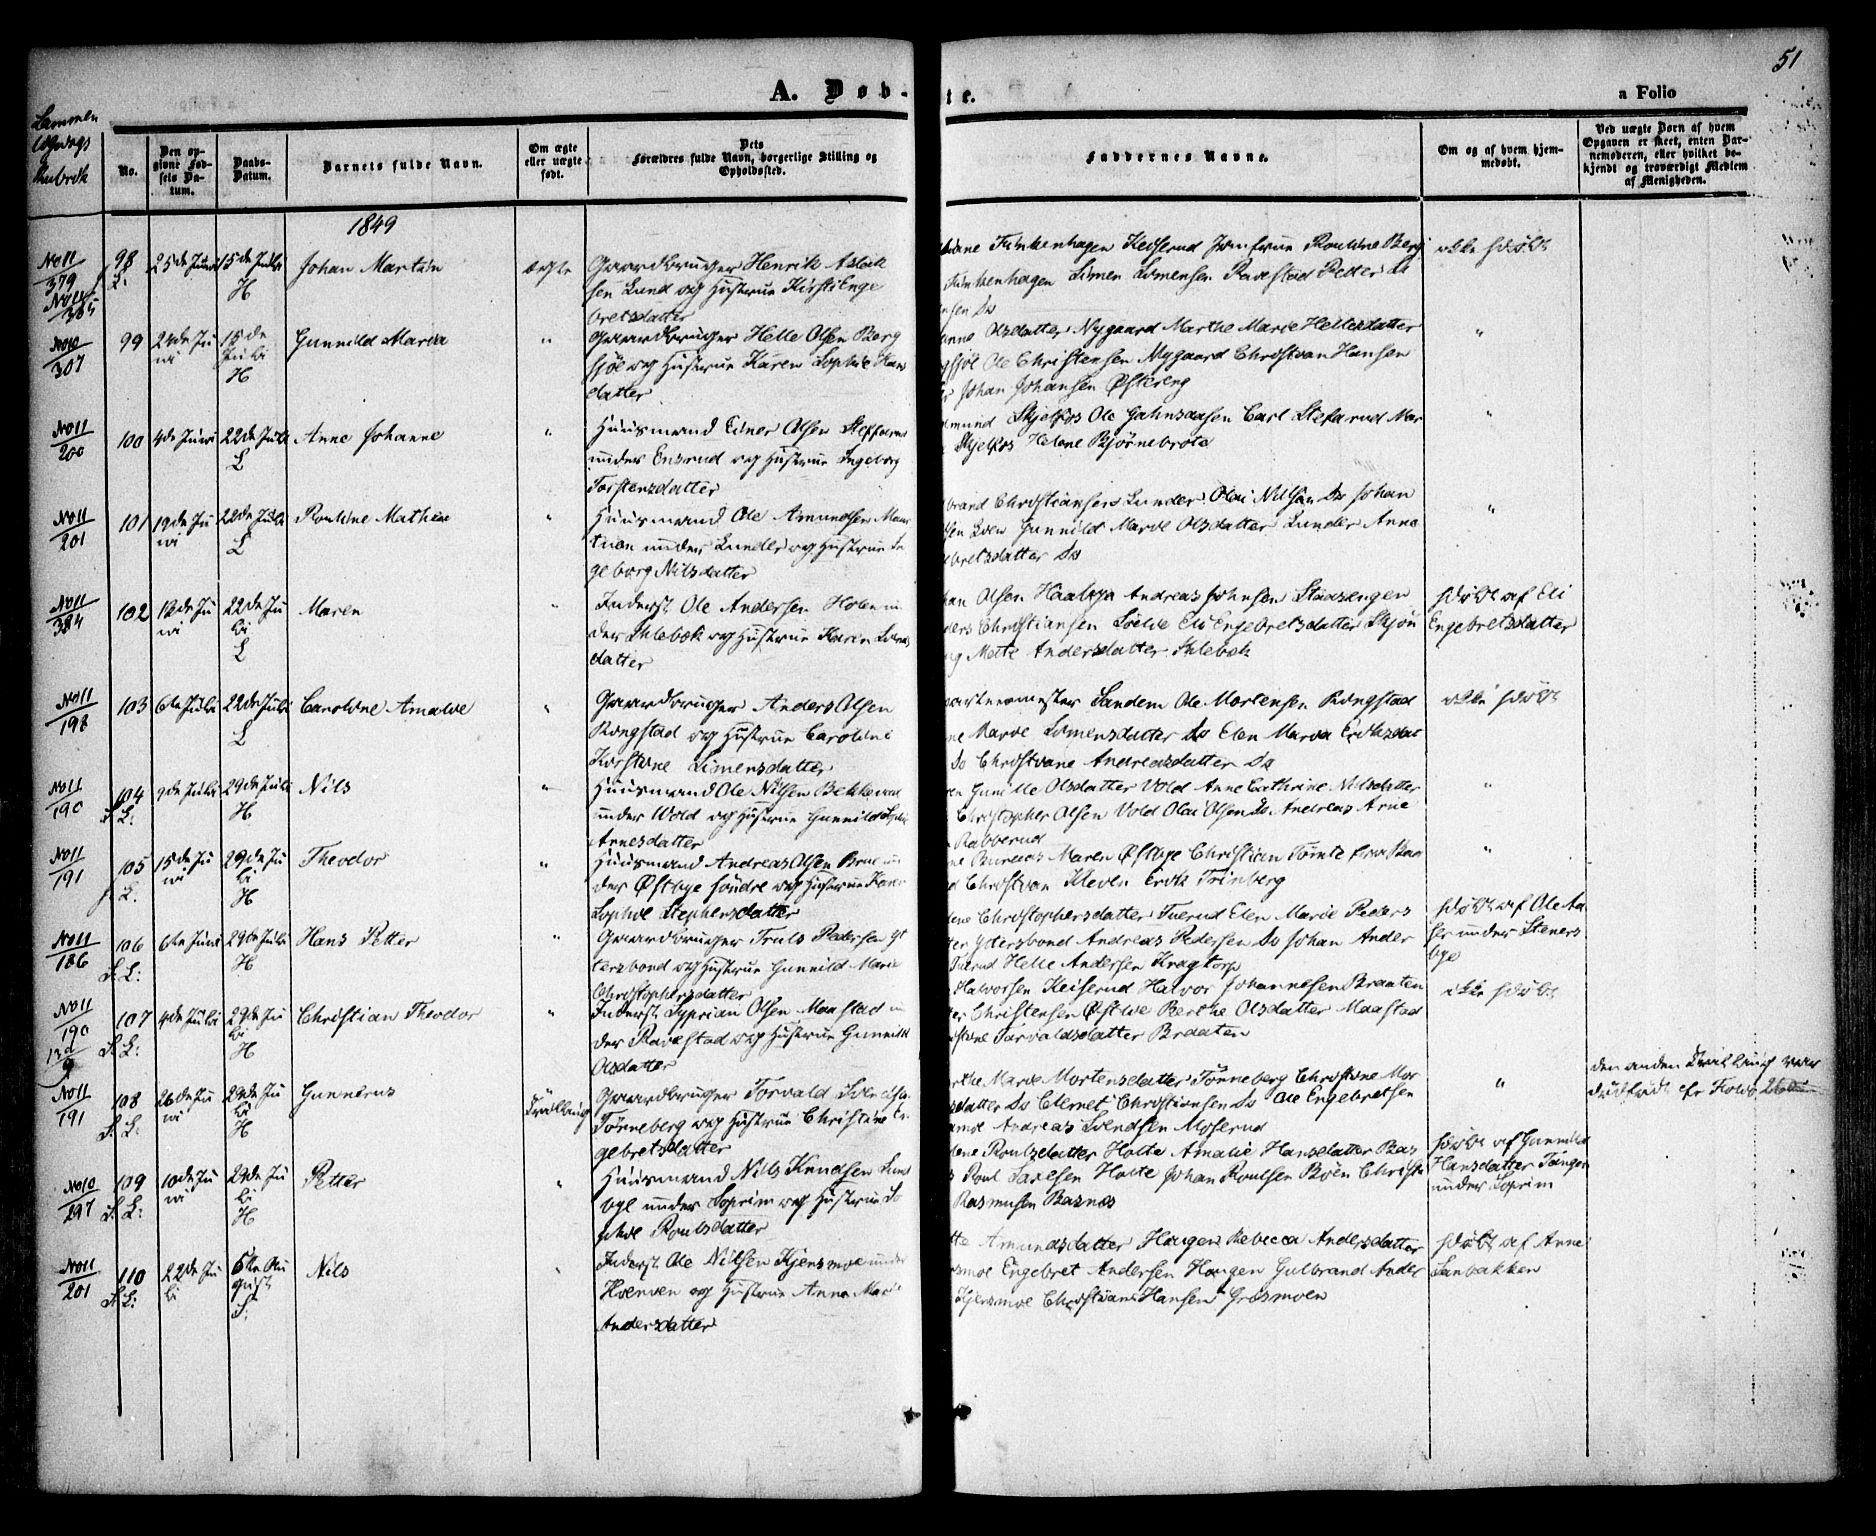 51
A. Døb-
te.
a Folio
Sammen
lignings
Rubrik
No.
Den op-
givne Fød-
sels Da-
tum.
Daabs-
Datum.
Barnets fulde Navn.
Om ægte
eller uægte
født.
Dets
Forældres fulde Navn, borgerlige Stilling og
Opholdssted.
Faddernes Navne.
Om og af hvem hjem-
medøbt.
Ved uægte Børn af hvem
Opgaven er skeet, enten Bar-
nemoderen, eller hvilket be-
kjendt og troværdigt Medlem
af Menigheden.
1849
No 11
379
98
25de Juni
15de Juli
H
Johan Martin
ægte
Gaardbruger Henrik Aslak
sen Lund og Hustrue Kirsti Enge
bretsdatter
Funkenhagen Keiserud Jomfrue Pouline Berg
Funkenhagen Simen Simensen Ravestad Petter Si
ensen Do
ikke hjdøbt
No 10
307
99
24de Ju
ni
15de
Juli
H
Gunnild Maria
"
Gaardbruger Helle Olsen Berg
sjøe og Hustrue Karen Sophie Hans
datter
anne Olsdatter Nygaard Marthe Marie Hellesdatter
gsjøe Ole Christensen Nygaard Christian Hansen
Johan Johansen Østereng
"
No 11
200
100
4de Juni
22de Juli
L
Anne Johanne
"
Huusmand Einer Olsen Steffarud
under Ensrud og Hustrue Ingeborg
Torstensdatter
mund Skjelfos Ole Gahnsaasen Carl Stefarud Mar
Skjelfos Helene Bjørnebrote
"
No 11
201
101
19de Ju
ni
22de Juli
L
Pouline Mathea
"
Huusmand Ole Amundsen Mons
tuen under Lunder og Hustrue In
geborg Nilsdatter
brand Christiansen Lunder Olai Nilsen Do Johan
sen Lien Gunnild Marie Olsdatter Lunder Anne
ebretsdatter Do
"
No 11
384
102
13de Ju
ni
22de Ju
li
L
Maren
"
Inderst Ole Andersen Holen un
der Slebæk og Hustrue Karin Simens
datter
han Olsen Haaløya Andreas Johnsen Staasengen
ders Christiansen Sølve Eli Engebretsdatter Skjøn
ng Mette Andersdatter Slebæk
hjdøbt af Eli
Engebretsdatter
No 11
198
103
6te Juli
22de Juli
L
Caroline Amalie
"
Gaardbruger Anders Olsen
Ringstad og Hustrue Caroline
Kirstine Simensdatter
arteermester Sandem Ole Mortensen Ringstad
ne Marie Simensdatter Do Elen Maria Eriksdat
Do Christiane Andreasdatter Do
ikke hjdøbt
No 11
190
104
S. L:
9de Juli
29de Juli
H
Nils
"
Huusmand Ole Nilsen Bekkevad
under Wold og Hustrue Gunnild Sophie
Arnesdatter
en Gunille Olsdatter Vold Anne Cathrine Nilsdatter
Christopher Olsen Vold Olai Olsen Do Andreas Arne
Rabberud
"
No 11
191
105
S. L:
15de Ju
ni
29de Ju
li
H
Theodor
"
Huusmand Andreas Olsen Brue un
der Østbye søndre og Hustrue Karen
Sophie Stephensdatter
ne Bureaas Maren Østbye Christian Tømte
Christian Kleven Erik Trinberg
"
No 11
186
106
S. L:
6te Juni
29de Juli
H
Hans Petter
"
Gaardbruger Truls Pedersen Yt
tersbond og Hustrue Gunnild Marie
Christophersdatter
ene Christophersdatter Tuerud Elen Marie Peders
ter Yttersbond Andreas Pedersen Do Johan Ander
Tuerud Helle Andersen Kragtorp
hjdøbt af Ole Aa
ser under Steners
bye
No 11
190
107
S. L:
4de Juli
29de Ju
li
H
Christian Theodor
"
Inderst Syprian Olsen Maastad un
der Ravestad og Hustrue Gunnild
Olsdatter
Halvorsen Keiserud Halvor Johannesen Braaten
er Christensen Østlie Berthe Olsdatter Maastad
istine Tarvaldsdatter Braaten
ikke hjdøbt
No 11
191
108
S. L:
26de Ju
ni
29de Ju
li
H
Gunnerus
Tvilling
Gaardbruger Torvald Svendsen
Tønneberg og Hustrue Christine En
gebretsdatter
rthe Marie Mortensdatter Tønneberg Christine Mor
sdatter Do Clemet Christiansen Do Ole Engebretsen
Andreas Svendsen Moserud
"
den anden Tvilling var
dødfødt
No 10
297
109
S. L:
10de Ju
ni
29de Ju
li
H
Petter
"
Huusmand Nils Knudsen Lund
bye under Soprim og Hustrue So
phie Poulsdatter
ene Poulsdatter Holte Amalie Hansdatter Bas
Poul Saxesen Holte Johan Poulsen Bøen Christi
Rasmusen Basnes
hjdøbt af Gunnild
Hansdatter Tangen
under Soprim
No 11
201
110
S. L:
22de Ju
li
5te Au
gust
S.
Nils
"
Inderst Ole Nilsen Kjensmoe under
Hoenven og Hustrue Anne Marie
Andersdatter
te Amundsdatter Haugen Rebecca Andersdatter
smoe Engebret Andersen Haugen Gulbrand Ander
Kjensmoe Christian Hansen Grosmoen
hjdøbt af Anne
Sanbakken